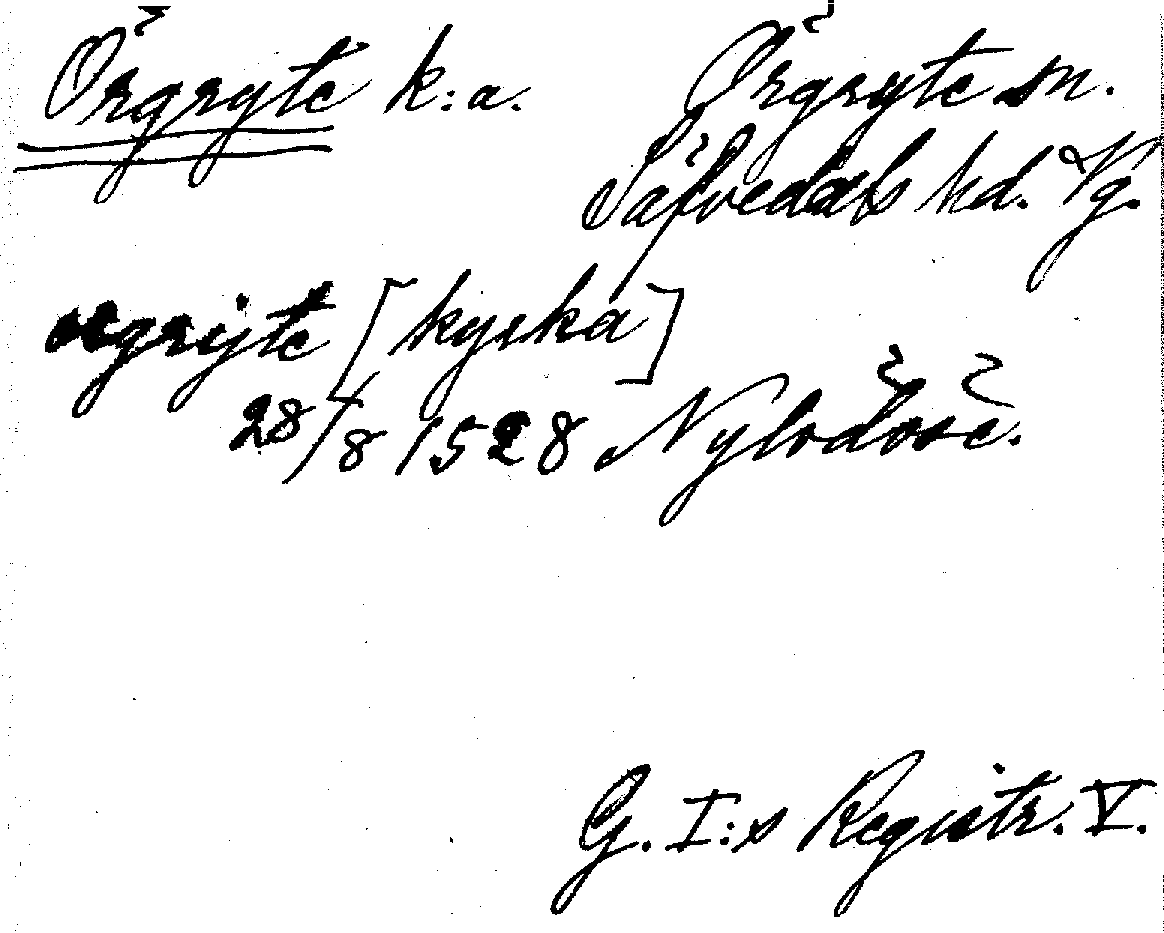 Örgryte k:a.
Örgryte sn.
Säfvedals hd. Vg.
orgryte [kyrka]
28/8 1528 Nylödöse.
G. I:s Registr. V.